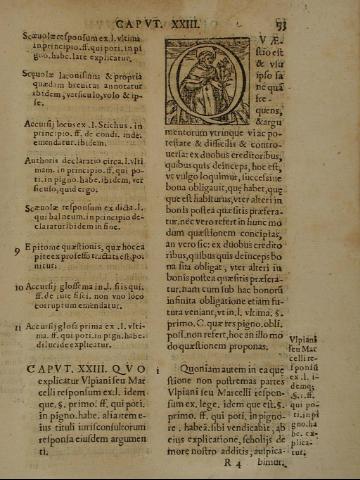 CAPVT. XXIII.
93
Scæuolæ responsum ex l. vltima
in principio. ff. qui poti. in pi
gno. habe. late explicatur.
Scæuolæ laconismus & propria
quædam breuitas annotatur
ibidem, versiculo, volo & ip-
se.
Accursij locus ex .l. Stichus. in
principio. ff. de condi. inde.
emendatur. ibidem.
Authoris declaratio circa .l. vlti
mam. in principio. ff. qui po-
ti. in pigno. habe. ibidem, ver
siculo, quid ergo.
Scæuolæ responsum ex dicta .l.
qui balneum. in principio de-
claratur ibidem in fine.
9 Epitome quæstionis, quæ hoc ca
pite ex professo tractata est, po-
nitur.
10 Accursij glossema in .l. si is qui.
ff. de iure fisci. non vno loco
corruptum emendatur.
11 Accursij glosa prima ex .l. vlti-
ma. ff. qui poti. in pign. habe.
dilucide explicatur.
CAPVT. XXIII. QVO
explicatur Vlpiani seu Mar
celli responsum ex .l. idem
que. §. primo. ff. qui poti.
in pigno. habe. alia item e-
ius tituli iurisconsultorum
responsa eiusdem argumen
ti.
Q VÆ-
stio est
& vtì
ipso sa
ne quā
fre-
quens,
& argu
mentorum vtrinque vi ac po-
testate & dissedijs & contro-
uersia: ex duobus creditoribus,
quibus quis deinceps, hoc est,
vt vulgo loquimur, successiue
bona obligauit, quę habet, quę
que est habiturus, vter alteri in
bonis postea quæsitis præfera-
tur, nec vero refert in hunc mo
dum quæstionem concipias,
an vero sic: ex duobus credito
ribus, quibus quis deinceps bo
na sita obligat, vter alteri in
bonis postea quæsitis præfera-
tur, nam cum sub hac bonorū
infinita obligatione etiam fu-
tura veniant, vt in .l. vltima. §.
primo. C. quæ res pigno. obli.
poss. non refert, hoc an illo mo
do quæstionem proponas.
1 Quoniam autem in ea quę
stione non postremas partes
Vlpiani seu Marcelli respon-
sum ex. lege. idem que est. §.
primo. ff. qui poti. in pigno-
re. habea. sibi vendicabit, ab
eius explicatione, scholijs de
more nostro additis, auspica-
R 4 bimur.
Vlpiani
seu Mar
celli re-
sponsū
ex .l. i-
demq;
§. i. ff.
qui po
ti. in pi
gno.
ha be.
ex pli-
catur.